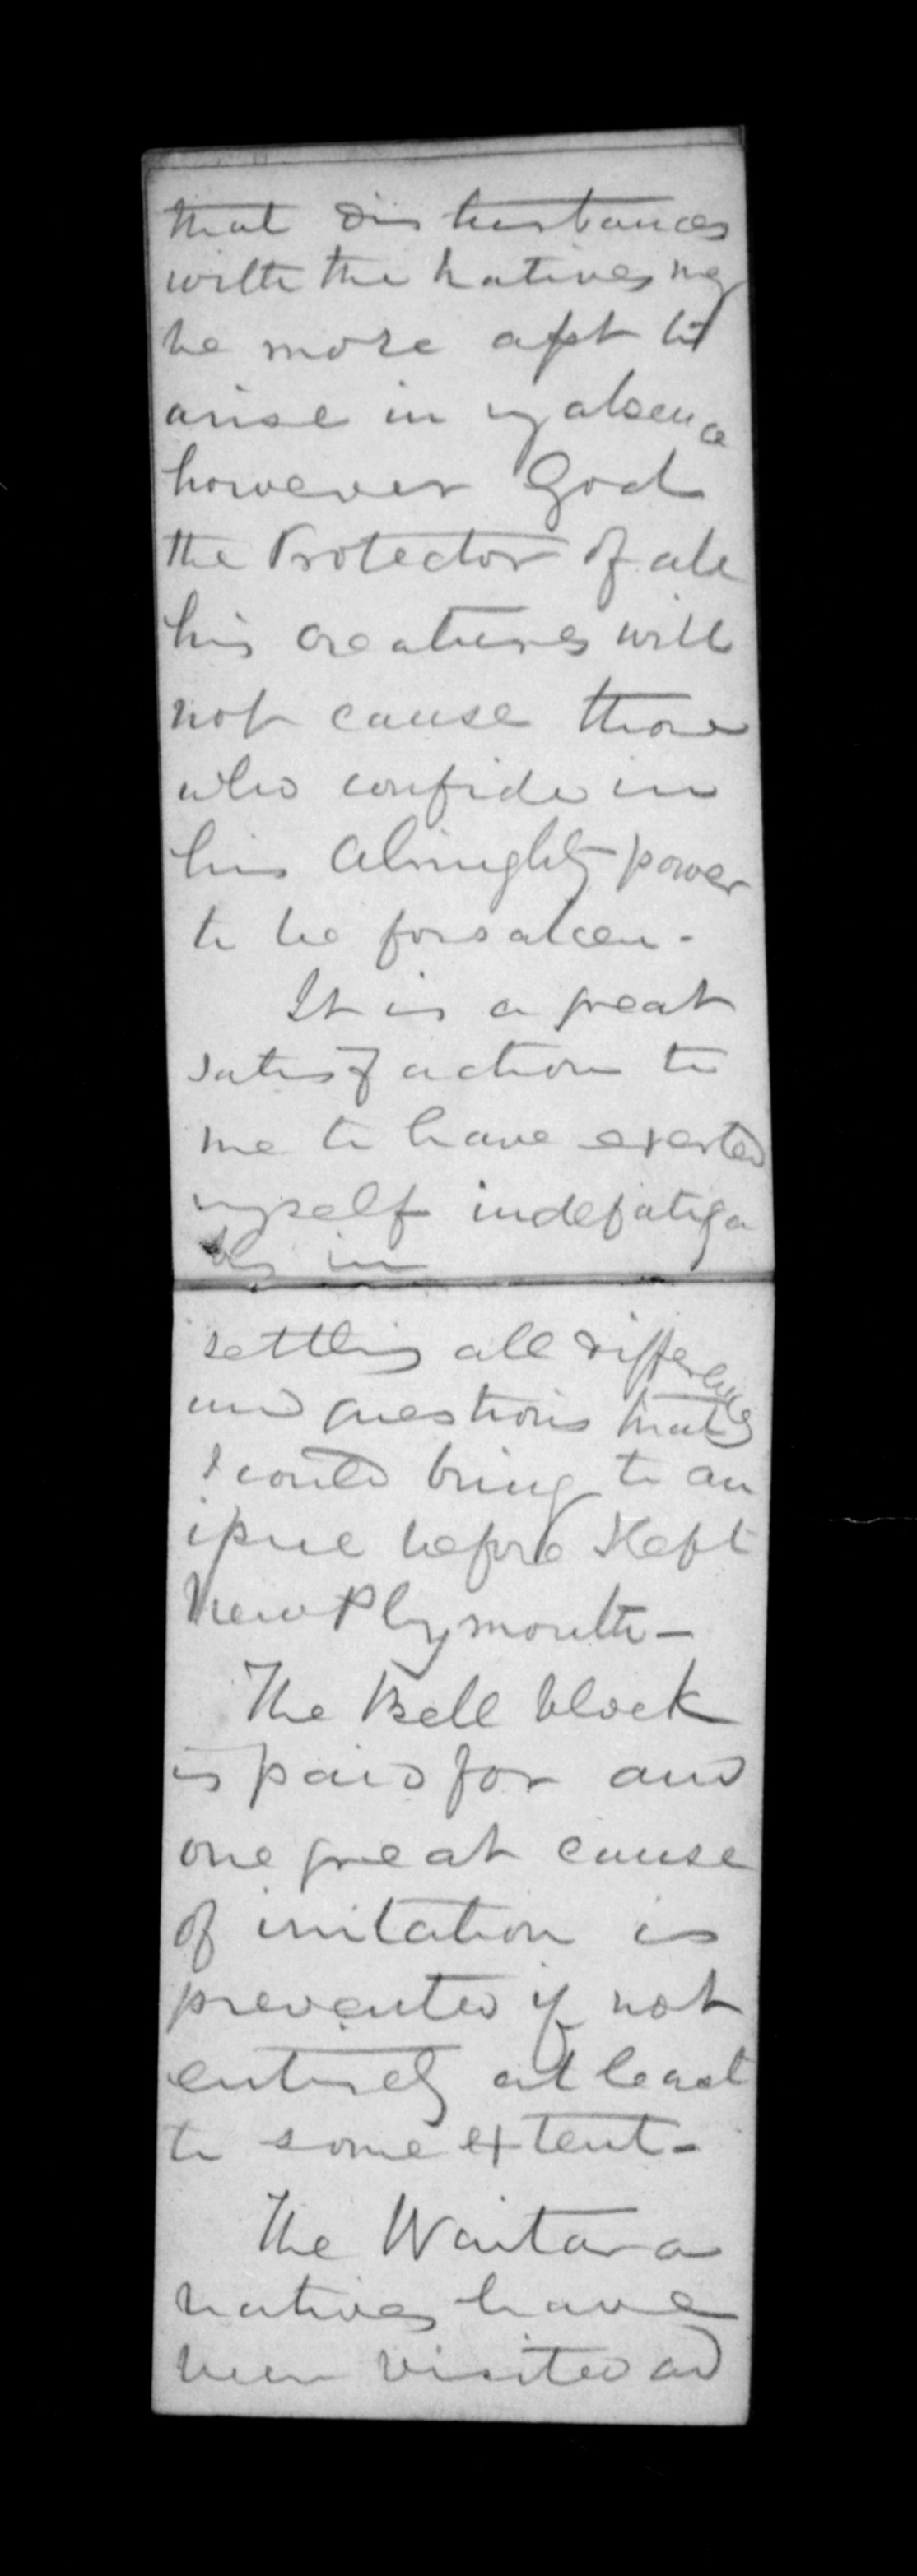 that disturbances
with the natives may
be more apt to
arise in my absence
however God
the Protector of all
his creatures will
not cause those
who confide in
his Almighty power
to be forsaken -
It is a great
satisfaction to
me to have exerted
myself indefatiga
bly in
settling all differences
and questions that
I could bring to an
issue before I left
New Plymouth -
The Bell block
is paid for and
one great cause
of irritation is
prevented if not
entirely at least
to some extent -
The Waitara
natives have
been visited and